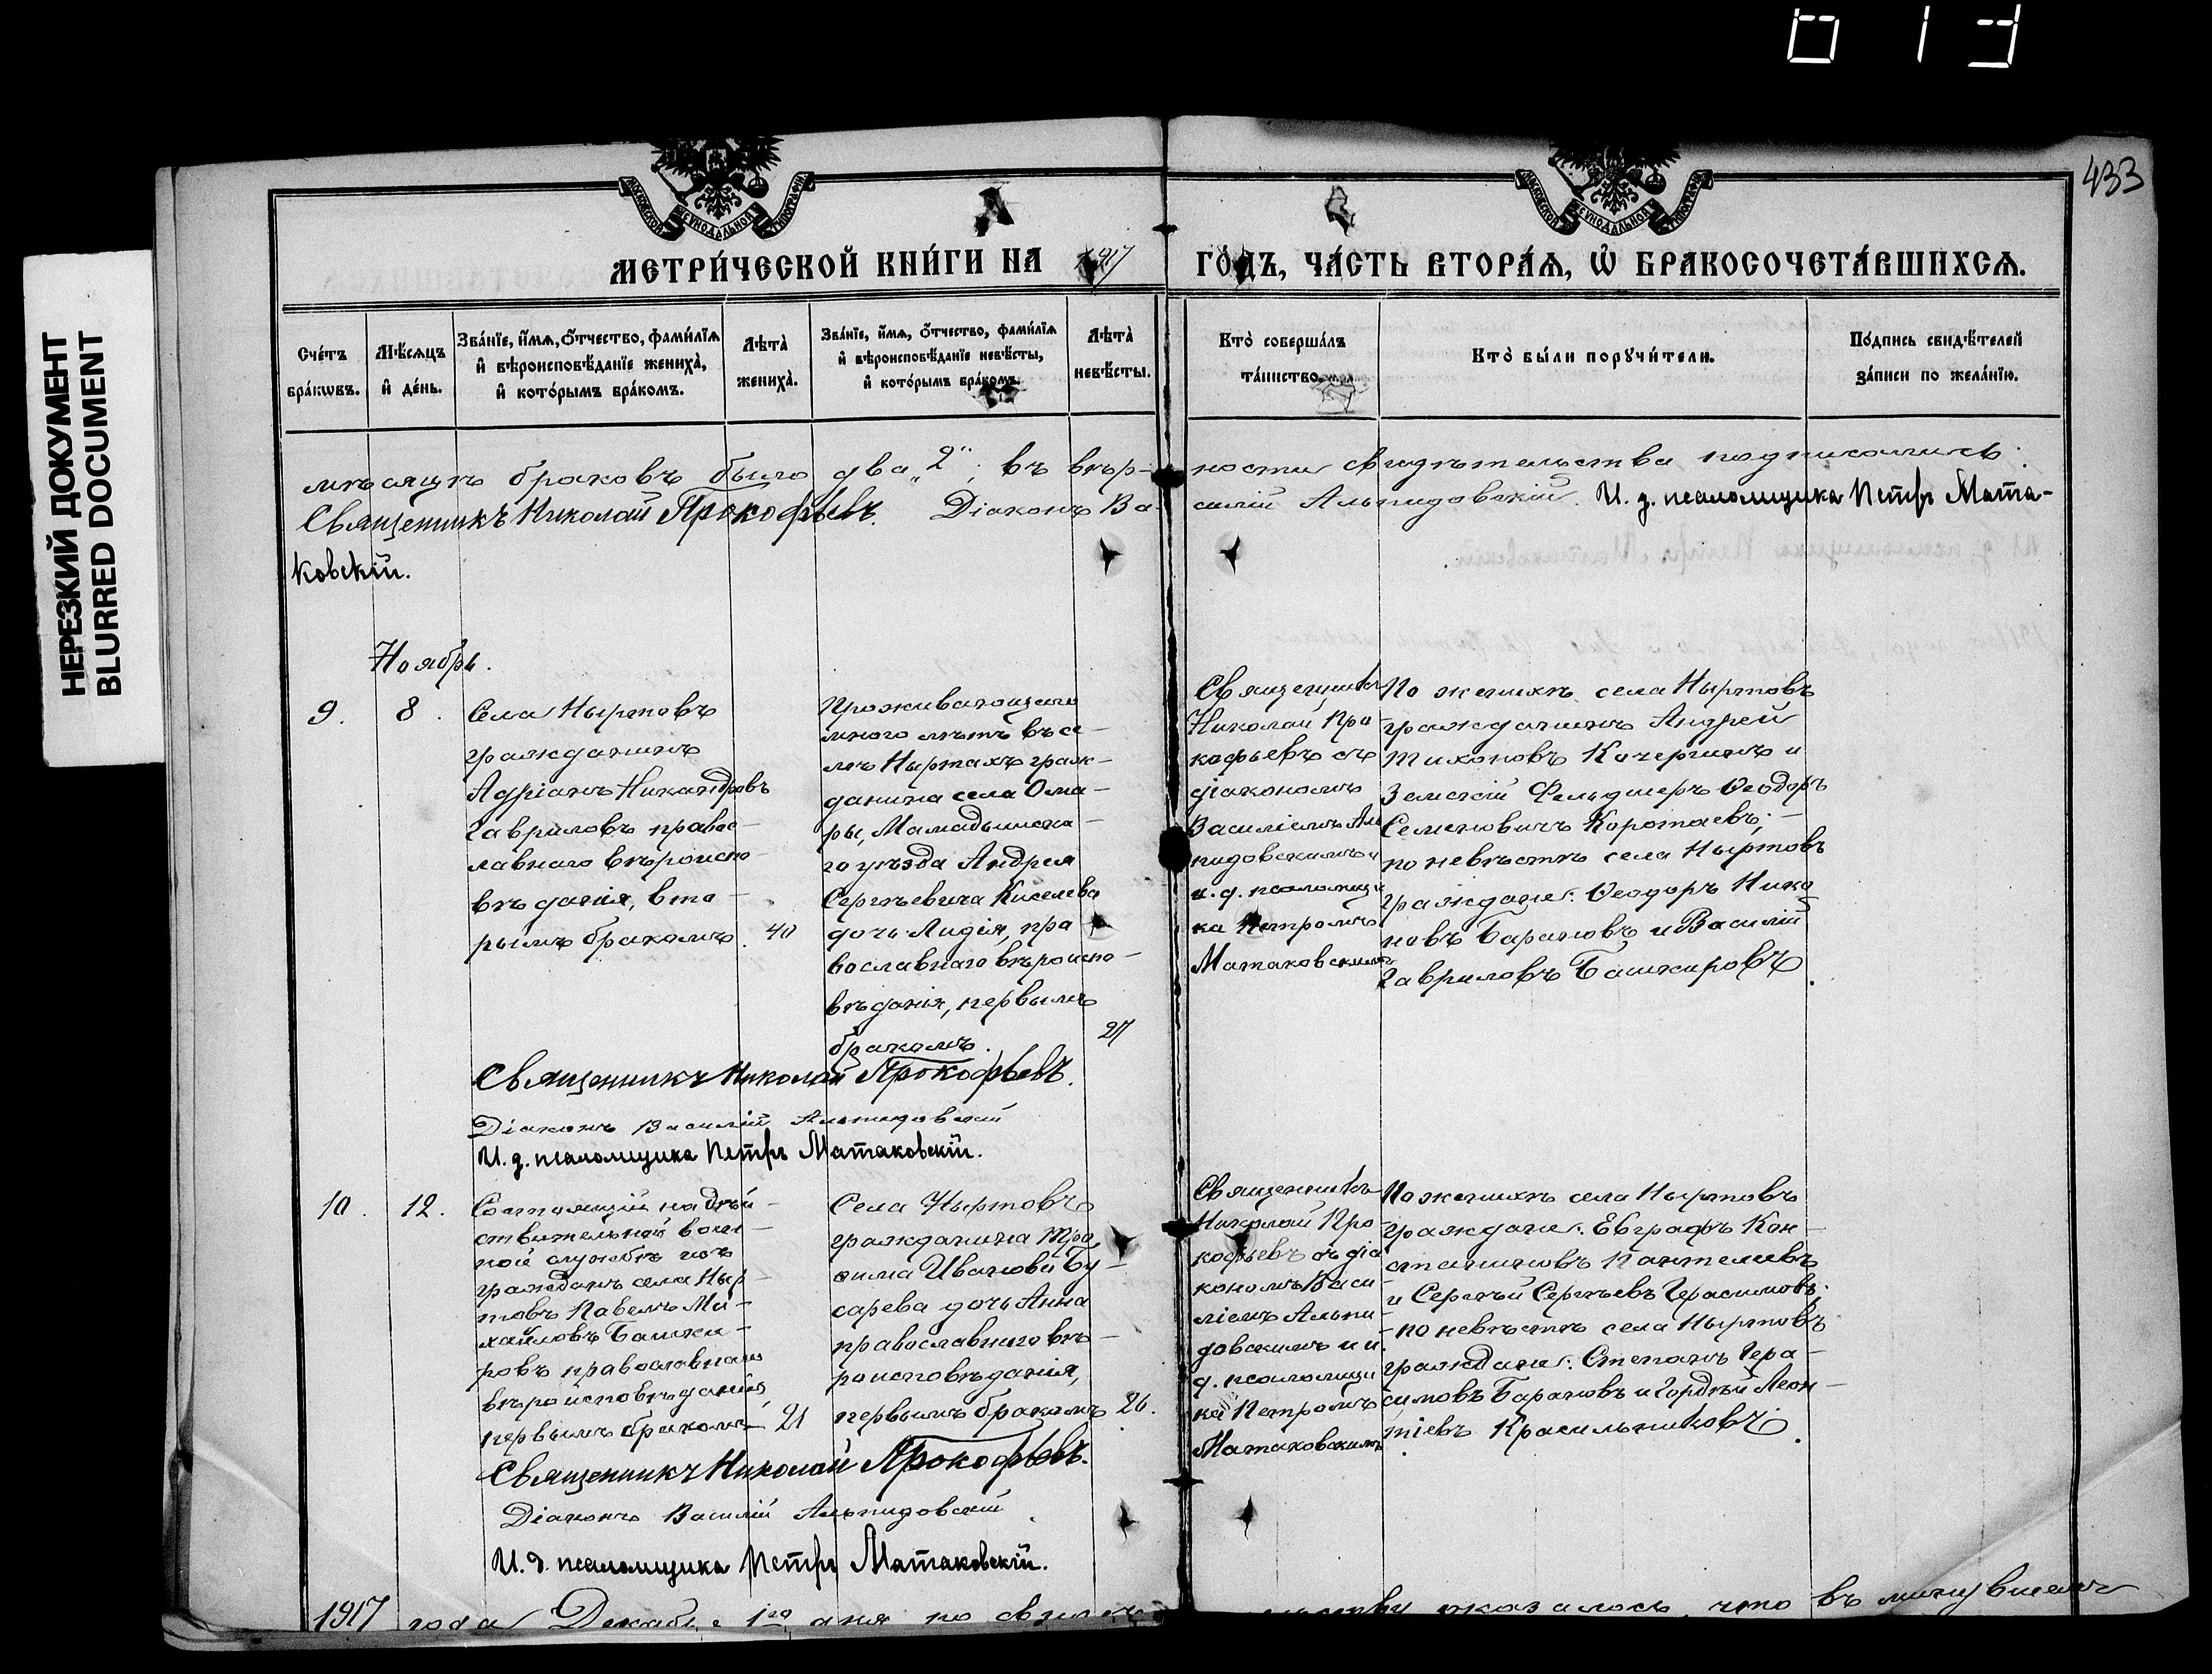 433
НЕРЕЗКИЙ ДОКУМЕНТ
BLURRED DOCUMENT
МОСКОВСКОЙ СѴНОДАЛЬНОЙ ТИПОГРАФІИ
МОСКОВСКОЙ СѴНОДАЛЬНОЙ ТИПОГРАФІИ
МЕТРИ́ЧЕСКОЙ КНИ́ГИ НА 1917 ГО́ДЪ, ЧА́СТЬ ВТОРА́Ѧ, Ѽ БРАКОСОЧЕТА́ВШИХСѦ.
Сче́тъ
бра́кѡвъ.
Мѣ́сѧцъ
и҆ де́нь.
Зва́нїе, и҆́мѧ, ѻ҆́тчество, фами́лїѧ
и҆ вѣроисповѣ́данїе жениха̀,
и҆ кото́рымъ бра́комъ.
Лѣта̀
жениха̀.
Зва́нїе, и҆́мѧ, ѻ҆́тчество, фами́лїѧ
и҆ вѣроисповѣ́данїе невѣ́сты,
и҆ кото́рымъ бра́комъ.
Лѣта̀
невѣ́сты.
Кто̀ соверша́лъ
та́инство.
Кто̀ бы́ли порꙋчи́тели.
По́дпись свидѣ́телей
за́писи по жела́нїю.
мѣсяцѣ браковъ было два „2“; въ вѣр-ности свидѣтельства подписались:
Священникъ Николай Прокофьевъ. Діаконъ Ва-силій Альпидовскій. И. д. псаломщика Петръ Мата-
ковскій.
Ноябрь.
9.
8.
Села Ныртовъ
гражданинъ
Адріанъ Никандровъ
Гавриловъ правос-
лавнаго вѣроиспо-
вѣданія, вто-
рымъ бракомъ.
40
Проживающаго
много лѣтъ въ се-
лѣ Ныртахъ граж-
данина села Ома-
ры, Мамадышска-
го уѣзда Андрея
Сергѣевича Киселева
дочь Лидія, пра
вославнаго вѣроиспо-
вѣданія, первымъ
бракомъ.
27
Священникъ
Николай Про-
кофьевъ съ
діакономъ
Василіемъ Аль
пидовскимъ и
и. д. псаломщи
ка Петромъ
Матаковскимъ
По женихѣ села Ныртовъ
гражданинъ Андрей
Тихоновъ Кочергинъ и
Земскій Фельдшеръ Ѳеодоръ
Семеновичъ Коротаевъ; -
по невѣстѣ села Ныртовъ
граждане: Ѳеодоръ Нико
новъ Барановъ и Василій
Гавриловъ Башкировъ.
Священникъ Николай Прокофьевъ.
Діаконъ Василій Альпидовскій
И. д. псаломщика Петръ Матаковскій.
10.
12.
Состоящій на дѣй-
ствительной воен-
ной службѣ изъ
гражданъ села Ныр-
товъ Павелъ Ми-
хайловъ Башки-
ровъ православнаго
вѣроисповѣданія,
первымъ бракомъ
21
Села Ныртовъ
гражданина Тро
фима Иванова Бу-
сарева дочь Анна
православнаго вѣ-
роисповѣданія,
первымъ бракомъ
26.
Священникъ
Николай Про-
кофьевъ съ діа
кономъ Васи-
ліемъ Альпи-
довскимъ и и.
д. псаломщи
ка Петромъ
Матаковскимъ.
По женихѣ села Ныртовъ
граждане: Евграфъ Кон-
стантиновъ Пантелеевъ
и Сергѣй Сергѣевъ Герасимовъ;
- по невѣстѣ села Ныртовъ
граждане: Степанъ Гера-
симовъ Барановъ и Гордѣй Леон-
тіевъ Красильниковъ.
Священникъ Николай Прокофьевъ.
Діаконъ Василій Альпидовскій
И. д. псаломщика Петръ Матаковскій.
1917 года Декабря 1го дня по оказалось, что въ минувшемъ